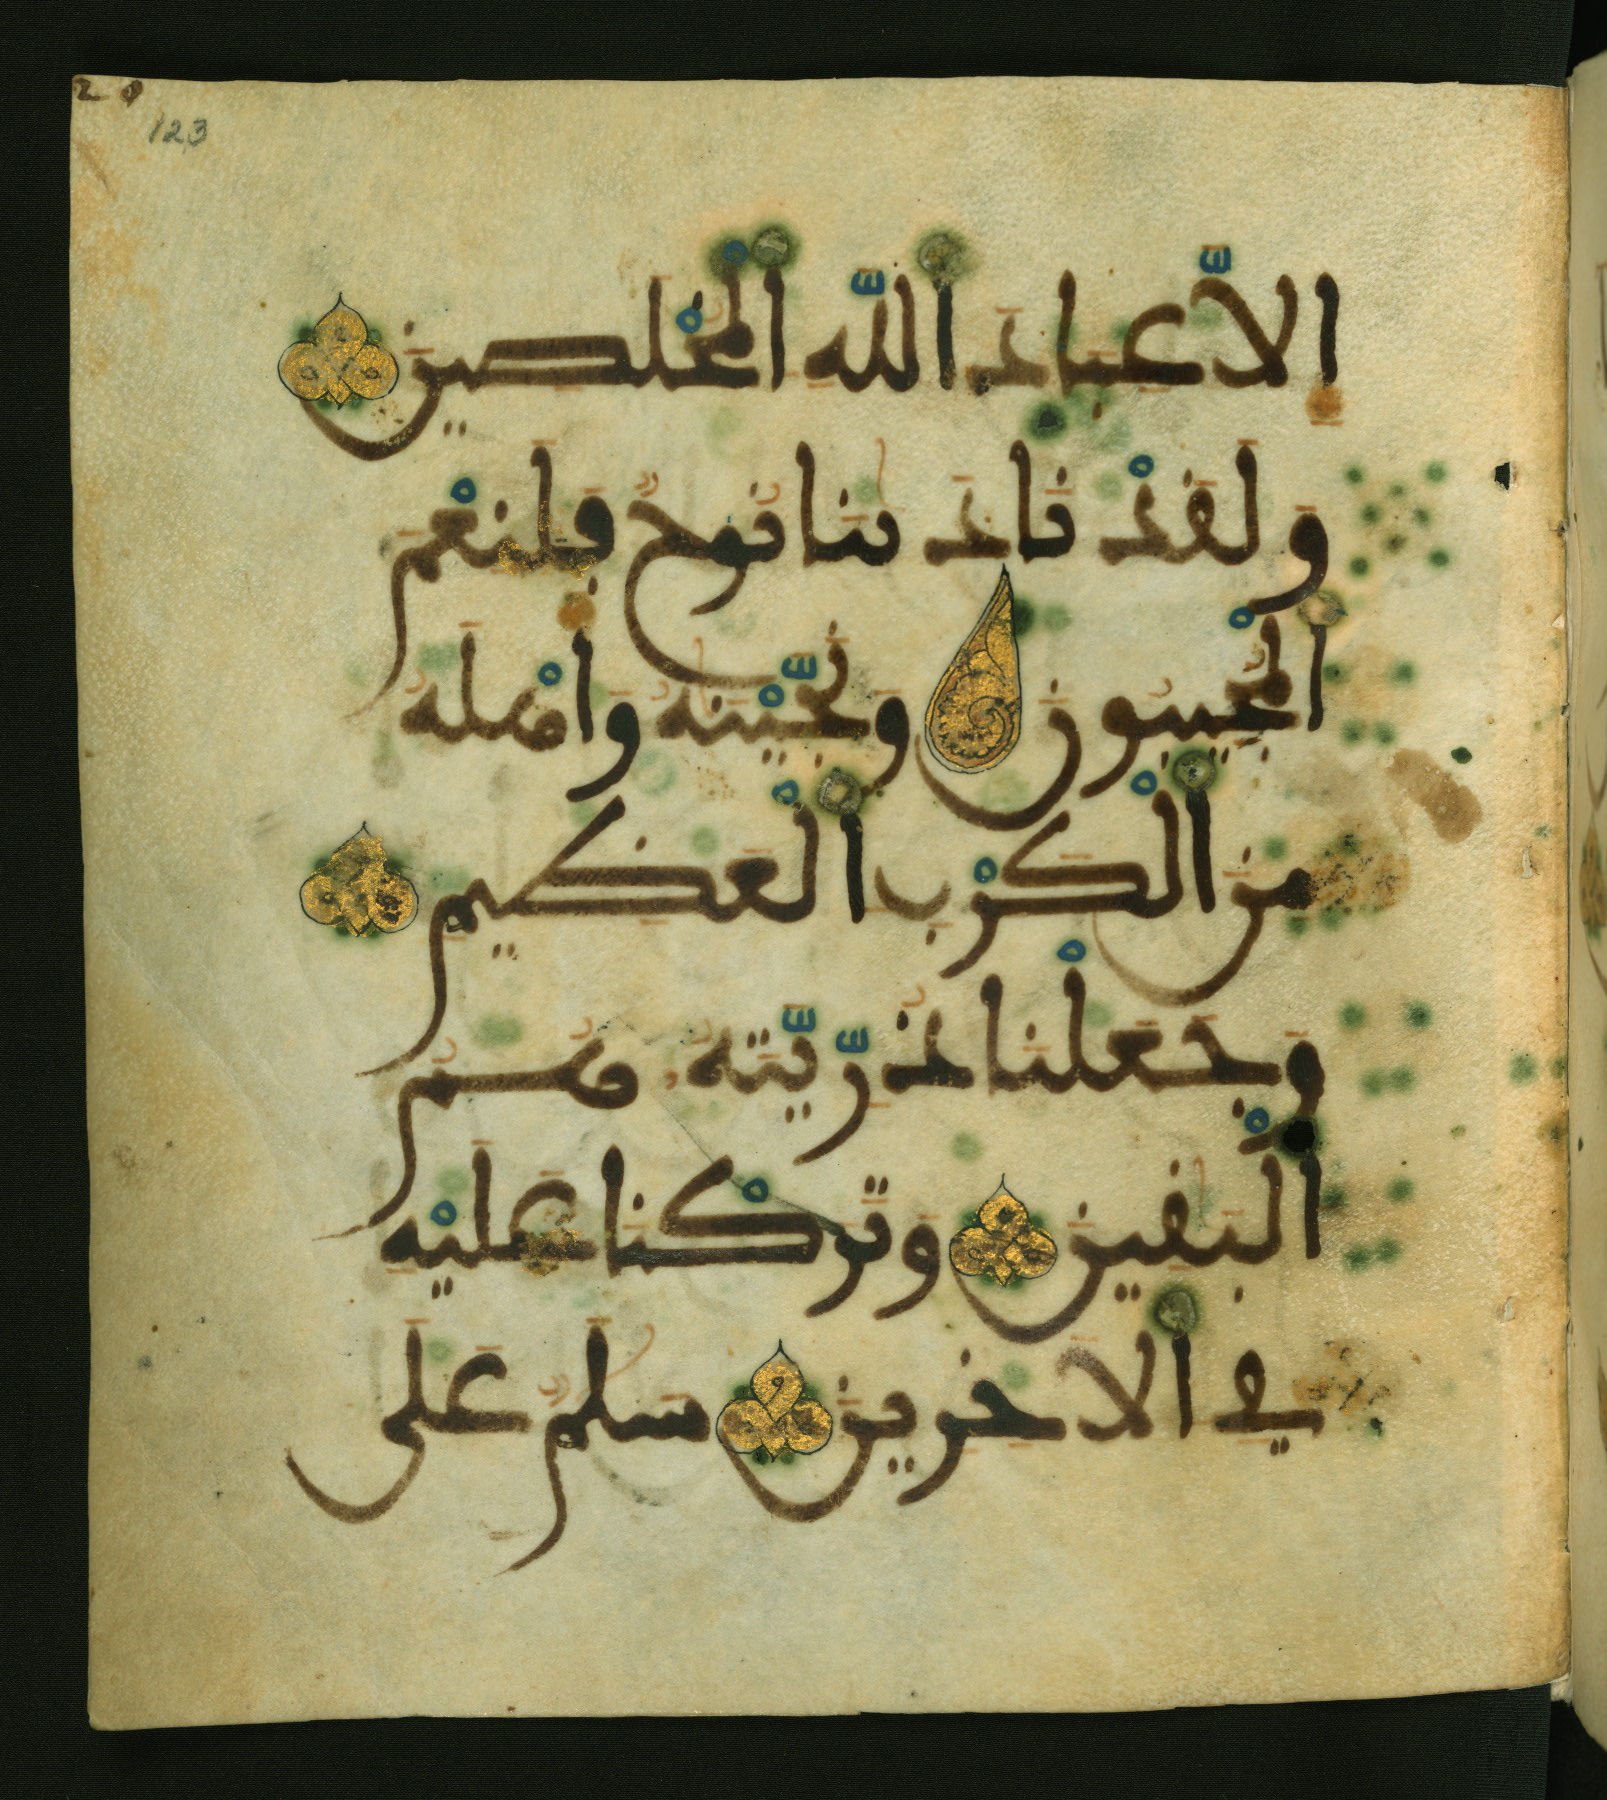 20
123
اِلَّا عِبَادَ اللَّهِ الْمُخْلَصِينَ
وَلَقَدْ نَادَىٰنَا نُوحٌ فَلَنِعْمَ
الْمُجِيبُونَ وَنَجَّيْنَٰهُ وَأَهْلَهُ
مِنَ الْكَرْبِ الْعَظِيمِ
وَجَعَلْنَا ذُرِّيَّتَهُ هُمُ
الْبَٰقِينَ وَتَرَكْنَا عَلَيْهِ
فِي الَاخِرِينَ سَلَٰمٌ عَلَى